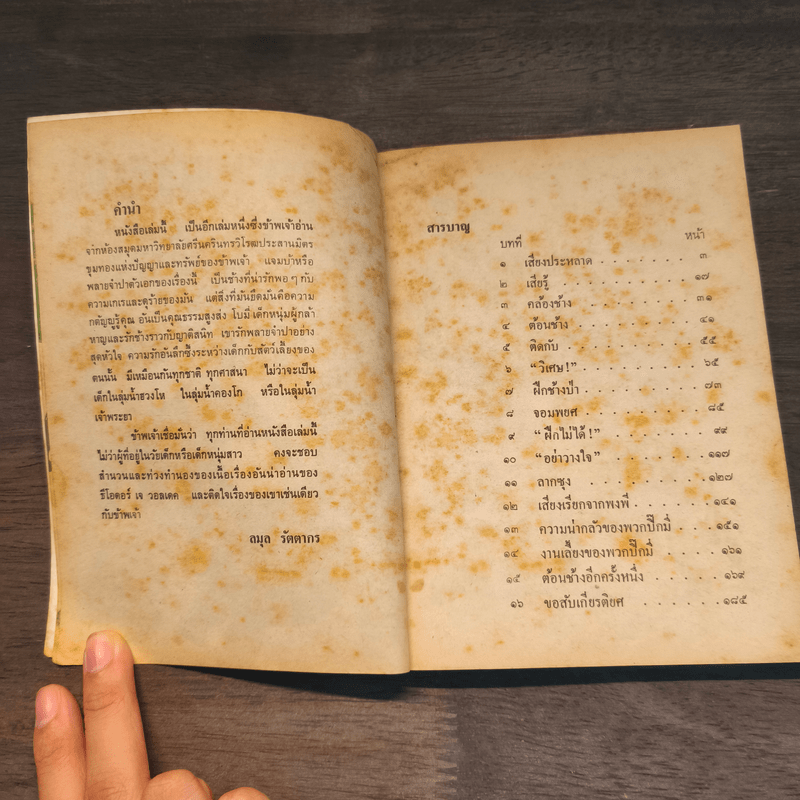 คำนำ
หนังสือเล่มนี้ เป็นอีกเล่มหนึ่งซึ่งข้าพเจ้าอ่าน
จากห้องสมุดมหาวิทยาลัยศรีนครินทรวิโรฒประสานมิตร
ขุมทองแห่งปัญญาและทรัพย์ของข้าพเจ้า แจมบ้าหรือ
พลายจำปาตัวเอกของเรื่องนี้ เป็นช้างที่น่ารักพอ ๆ กับ
ความเกเรและดุร้ายของมัน แต่สิ่งที่มันยึดมั่นคือความ
กตัญญูรู้คุณ อันเป็นคุณธรรมสูงส่ง โบมี่ เด็กหนุ่มผู้กล้า
หาญและรักช้างราวกับญาติสนิท เขารักพลายจำปาอย่าง
สุดหัวใจ ความรักอันลึกซึ้งระหว่างเด็กกับสัตว์เลี้ยงของ
ตนนั้น มีเหมือนกันทุกชาติ ทุกศาสนา ไม่ว่าจะเป็น
เด็กในลุ่มน้ำฮวงโห ในลุ่มน้ำคองโก หรือในลุ่มน้ำ
เจ้าพระยา
ข้าพเจ้าเชื่อมั่นว่า ทุกท่านที่อ่านหนังสือเล่มนี้
ไม่ว่าผู้ที่อยู่ในวัยเด็กหรือเด็กหนุ่มสาว คงจะชอบ
สำนวนและท่วงทำนองของเนื้อเรื่องอันน่าอ่านของ
ธีโอดอร์ เจ วอลเดค และติดใจเรื่องของเขาเช่นเดียว
กับข้าพเจ้า
ลมุล รัตตากร
สารบาญ
บทที่ หน้า
๑ เสียงประหลาด . . . . . . . ๓
๒ เสียรู้ . . . . . . . . . . ๑๗
๓ คล้องช้าง . . . . . . . . . ๓๑
๔ ต้อนช้าง . . . . . . . . . ๔๑
๕ ติดกับ . . . . . . . . . . ๕๕
๖ “วิเศษ!” . . . . . . . . . ๖๕
๗ ฝึกช้างป่า . . . . . . . . . ๗๓
๘ จอมพยศ . . . . . . . . . ๘๕
๙ “ฝึกไม่ได้!” . . . . . . . . ๙๙
๑๐ “อย่าวางใจ” . . . . . . . . ๑๑๗
๑๑ ลากซุง . . . . . . . . . . ๑๒๗
๑๒ เสียงเรียกจากพงพี . . . . . . ๑๔๑
๑๓ ความน่ากลัวของพวกปิ๊กมี่ . . . . ๑๕๑
๑๔ งานเลี้ยงของพวกปิ๊กมี่ . . . . . ๑๖๑
๑๕ ต้อนช้างอีกครั้งหนึ่ง . . . . . . ๑๖๙
๑๖ ขอสับเกียรติยศ . . . . . . ๑๘๕